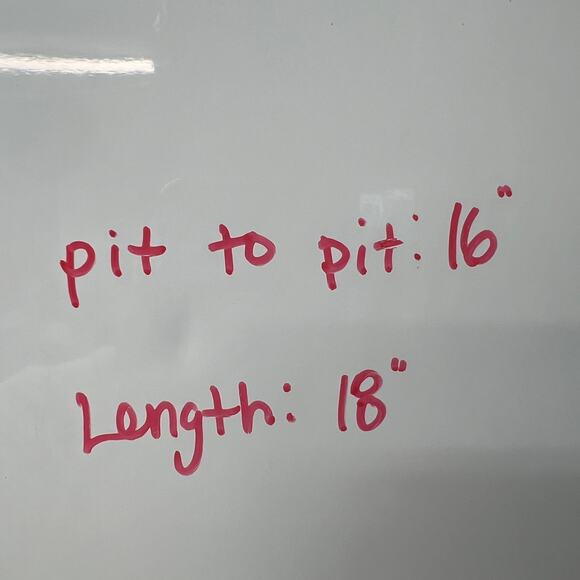 pit to pit: 16"
Length: 18"